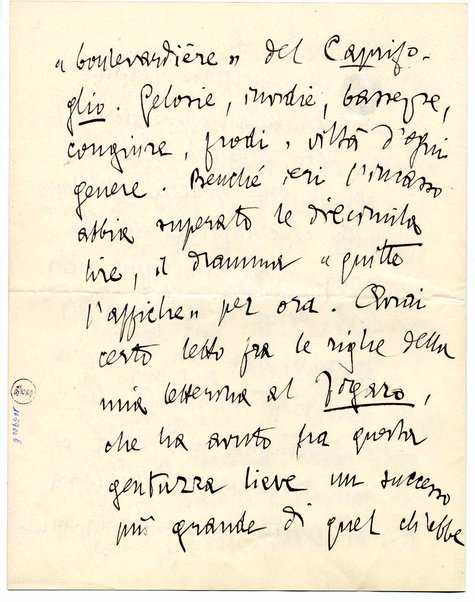 « boulevardière » del Caprifo-
glio. Gelosie, invidie, bassezze,
congiure, frodi, viltà d'ogni
genere. Benché ieri l'incasso
abbia superato le diecimila
lire, il dramma « quitte
l'affiche » per ora. Avrai
certo letto fra le righe della
mia letterona al Figaro,
che ha avuto fra questa
gentuzza lieve un successo
più grande di quel ch'ebbe